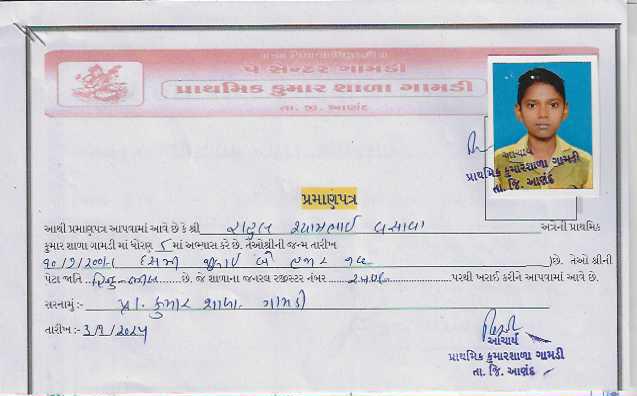 પે સેન્ટર ગામડી
પ્રાથમિક કુમાર શાળા ગામડી
તા. જી. આણંદ
આચાર્ય
પ્રાથમિક કુમારશાળા ગામડી
તા. જિ. આણંદ
પ્રમાણપત્ર
આથી પ્રમાણપત્ર આપવામાં આવે છે કે શ્રી રાહુલ વસાવા અત્રેની પ્રાથમિક
કુમાર શાળા ગામડી માં ધોરણ ૮ માં અભ્યાસ કરે છે. તેઓશ્રીની જન્મ તારીખ
દસમી બે હજાર )છે. તેઓ શ્રીની
પેટા જાતિ ..હિન્દુ-ભીલ......છે. જે શાળાના જનરલ રજીસ્ટર નંબર પરથી ખરાઈ કરીને આપવામાં આવે છે.
સરનામું :- પ્રા. કુમાર શાળા. ગામડી
તારીખ :-
આચાર્ય
પ્રાથમિક કુમારશાળા ગામડી
તા. જિ. આણંદ